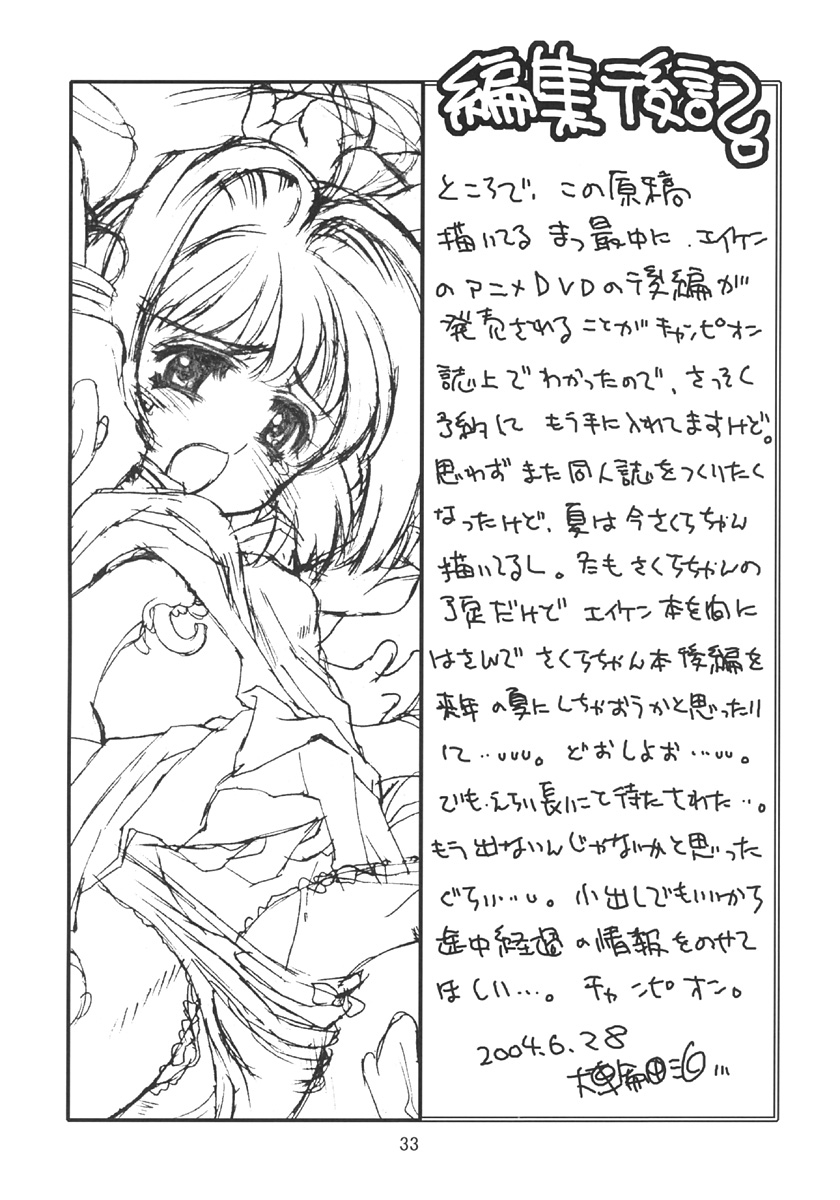 編集後記
ところで、この原稿
描いてるまっ最中に、エイケン
のアニメDVDの後編が
発売されることがチャンピオン
誌上でわかったので、さっそく
予約して もう手に入れてますけど。
思わずまた同人誌をつくりたく
なったけど、夏は今さくらちゃん
描いてるし。冬もさくらちゃんの
予定だけど エイケン本を間に
はさんで さくらちゃん本後編を
来年の夏にしちゃおうかと思ったり
して‥‥。どおしよお‥‥。
でも、えらい長いこと待たされた‥。
もう出ないんじゃないかと思った
ぐらい‥‥。小出しでもいいから
途中経過の情報をのせて
ほしい‥‥。チャンピオン。
2004.6.28
33